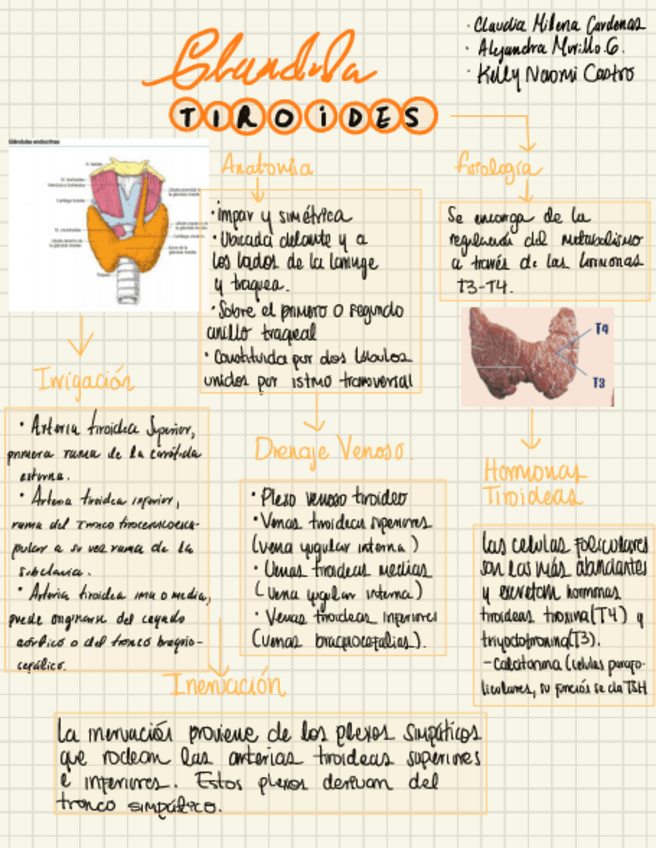 · Claudia Milena Cardenas
· Alejandra Murillo.G.
· Kelly Naomi Castro
Glandula
TIROIDES
Glándulas endocrinas
Anatomia
fisiología
· Impar y simétrica
· Ubicada delante y a
los lados de la laringe
y traquea.
· Sobre el primero o segundo
anillo traqueal
· Constituida por dos lóbulos
unidos por istmo transversal
Se encarga de la
regulación del metabolismo
a través de las hormonas
T3-T4.
T4
T3
Irrigación
· Arteria tiroidea superior,
primera rama de la carótida
externa.
· Arteria tiroidea inferior,
rama del Tronco
a su vez rama de la
subclavia.
· Arteria tiroidea ima o media,
puede originarse del cayado
aórtico o del tronco braquio-
cefálico.
Drenaje Venoso.
· Plexo venoso tiroideo
· Venas tiroideas superiores
(vena yugular interna)
· Venas tiroideas medias
(vena yugular interna)
· Venas tiroideas inferiores
(venas braquiocefalias).
Hormonas
Tiroideas
Las celulas foliculares
son las más abundantes
y excretan hormonas
tiroideas tiroxina(T4) y
triyodotironina(T3).
- Calcitonina (celulas parafo-
liculares, su función se da TSH
Inervación
La inervación proviene de los plexos simpáticos
que rodean las arterias tiroideas superiores
e inferiores. Estos plexos derivan del
tronco simpático.